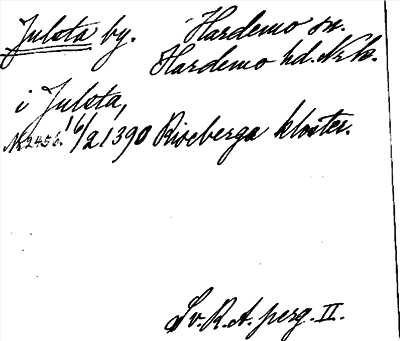 Julsta by. Hardemo sn.
Hardemo hd. Nrk.
i Julsta,
Nr 2456. 16/2 1390 Riseberga kloster.
Sv. R.A. perg. II.